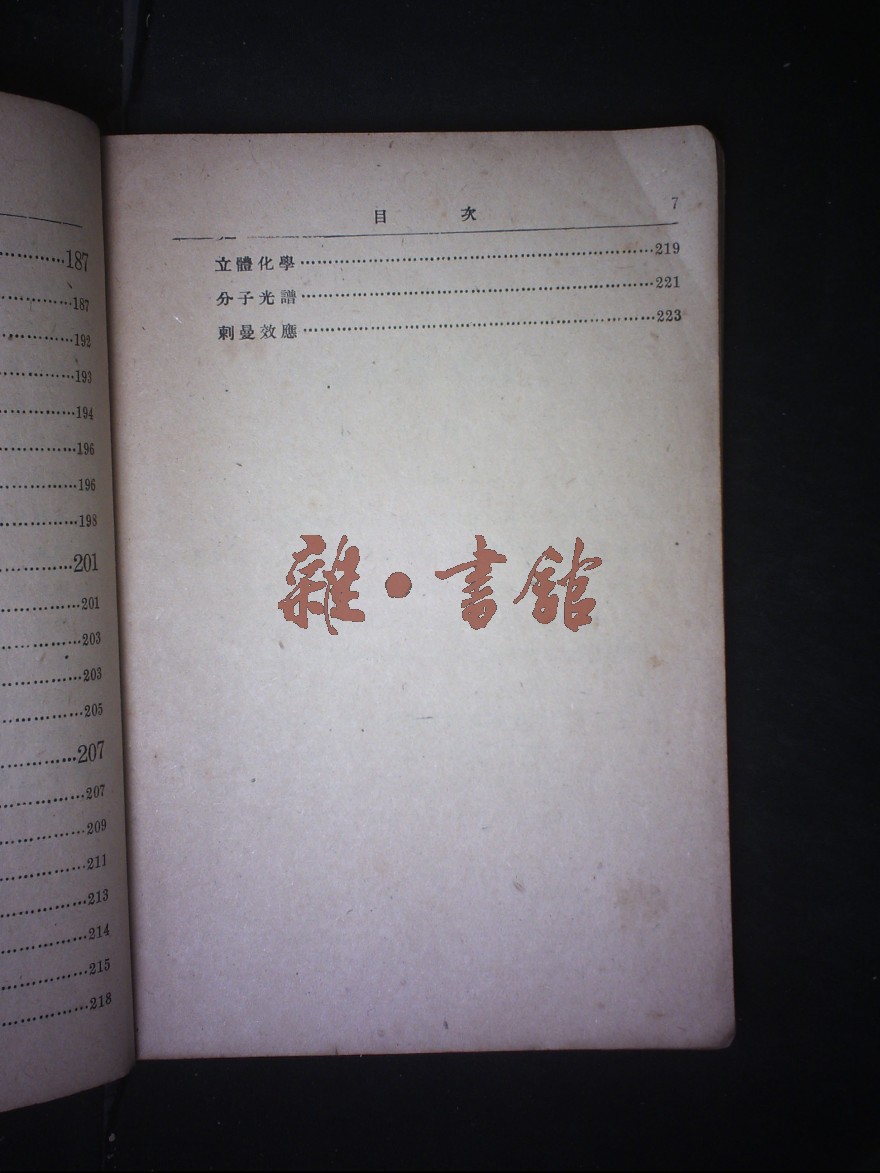 187
187
192
193
194
196
196
198
201
201
203
203
205
207
207
209
211
213
214
215
218
目 次 7
立體化學 219
分子光譜 221
剌曼效應 223
雜·書館